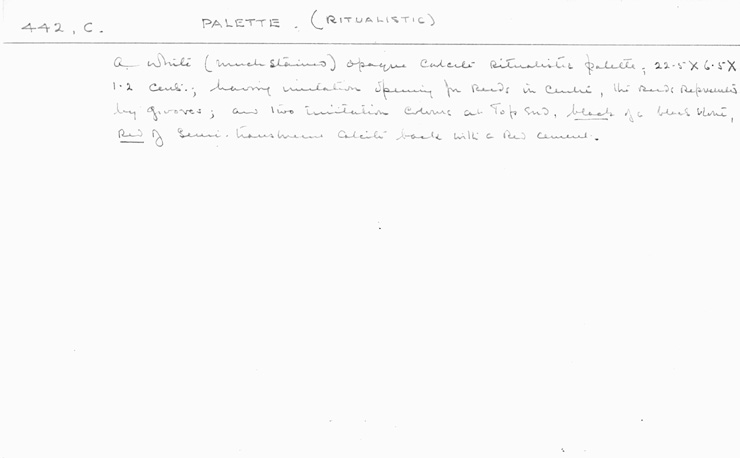 442, C. PALETTE. (RITUALISTIC)
A White (much stained) opaque Calcite Ritualistic palette; 22.5 X 6.5 X
1.2 Cent.; having imitation opening for Reeds in Centre, the Reeds Represented
by grooves; and two imitation Colours at Top End, black of a black stone,
Red of Semi-translucent Calcite back with a Red cement.